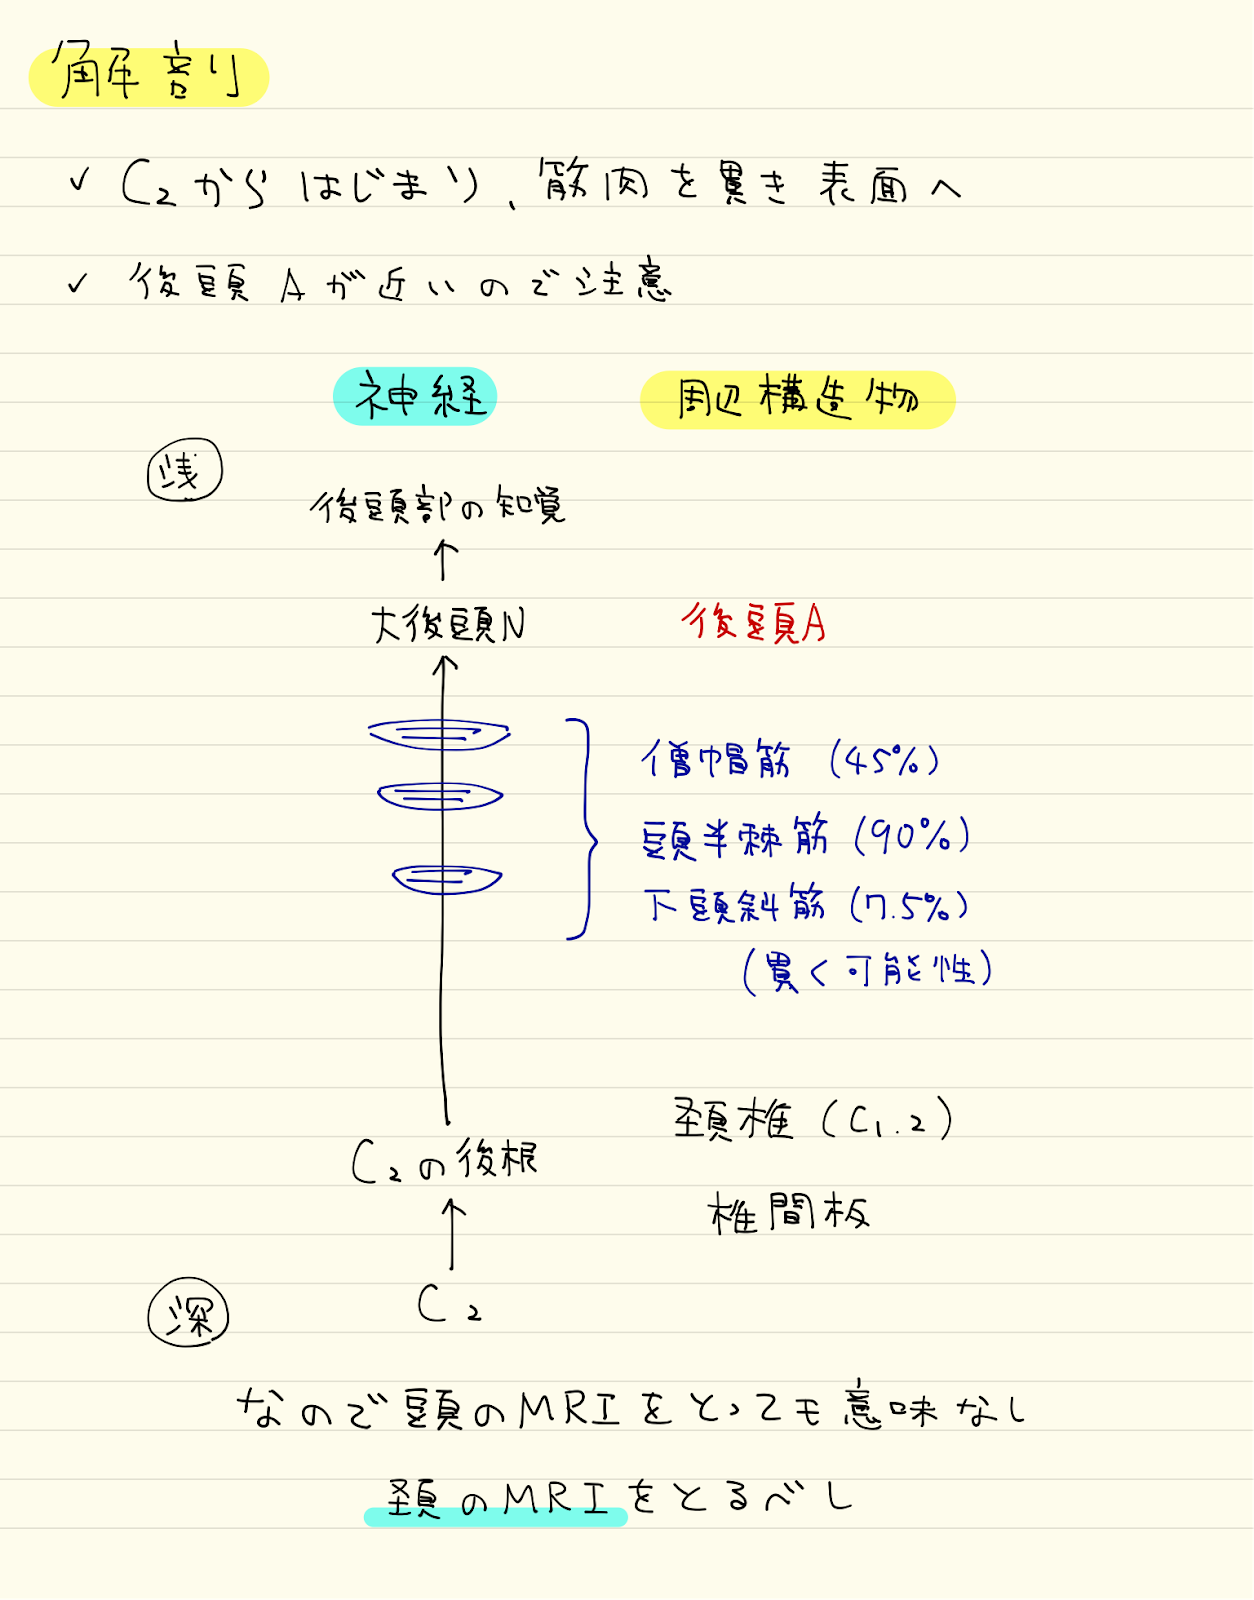 解剖
✓ C₂からはじまり、筋肉を貫き表面へ
✓ 後頭Aが近いので注意
神経 周辺構造物
浅
後頭部の知覚
↑
大後頭N 後頭A
僧帽筋 (45%)
頭半棘筋 (90%)
下頭斜筋 (7.5%)
(貫く可能性)
頚椎 (C₁.₂)
C₂の後根
椎間板
↑
C₂
深
なので頭のMRIをとっても意味なし
頚のMRIをとるべし